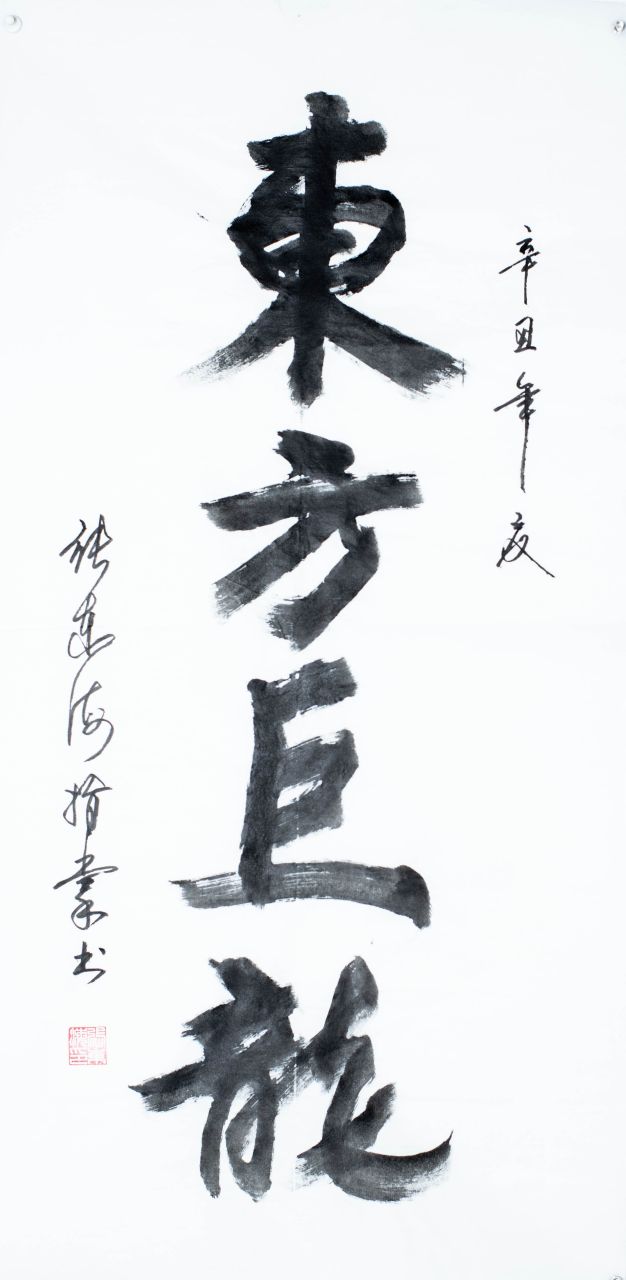 辛丑年夏
東方巨龍
张东海指掌书